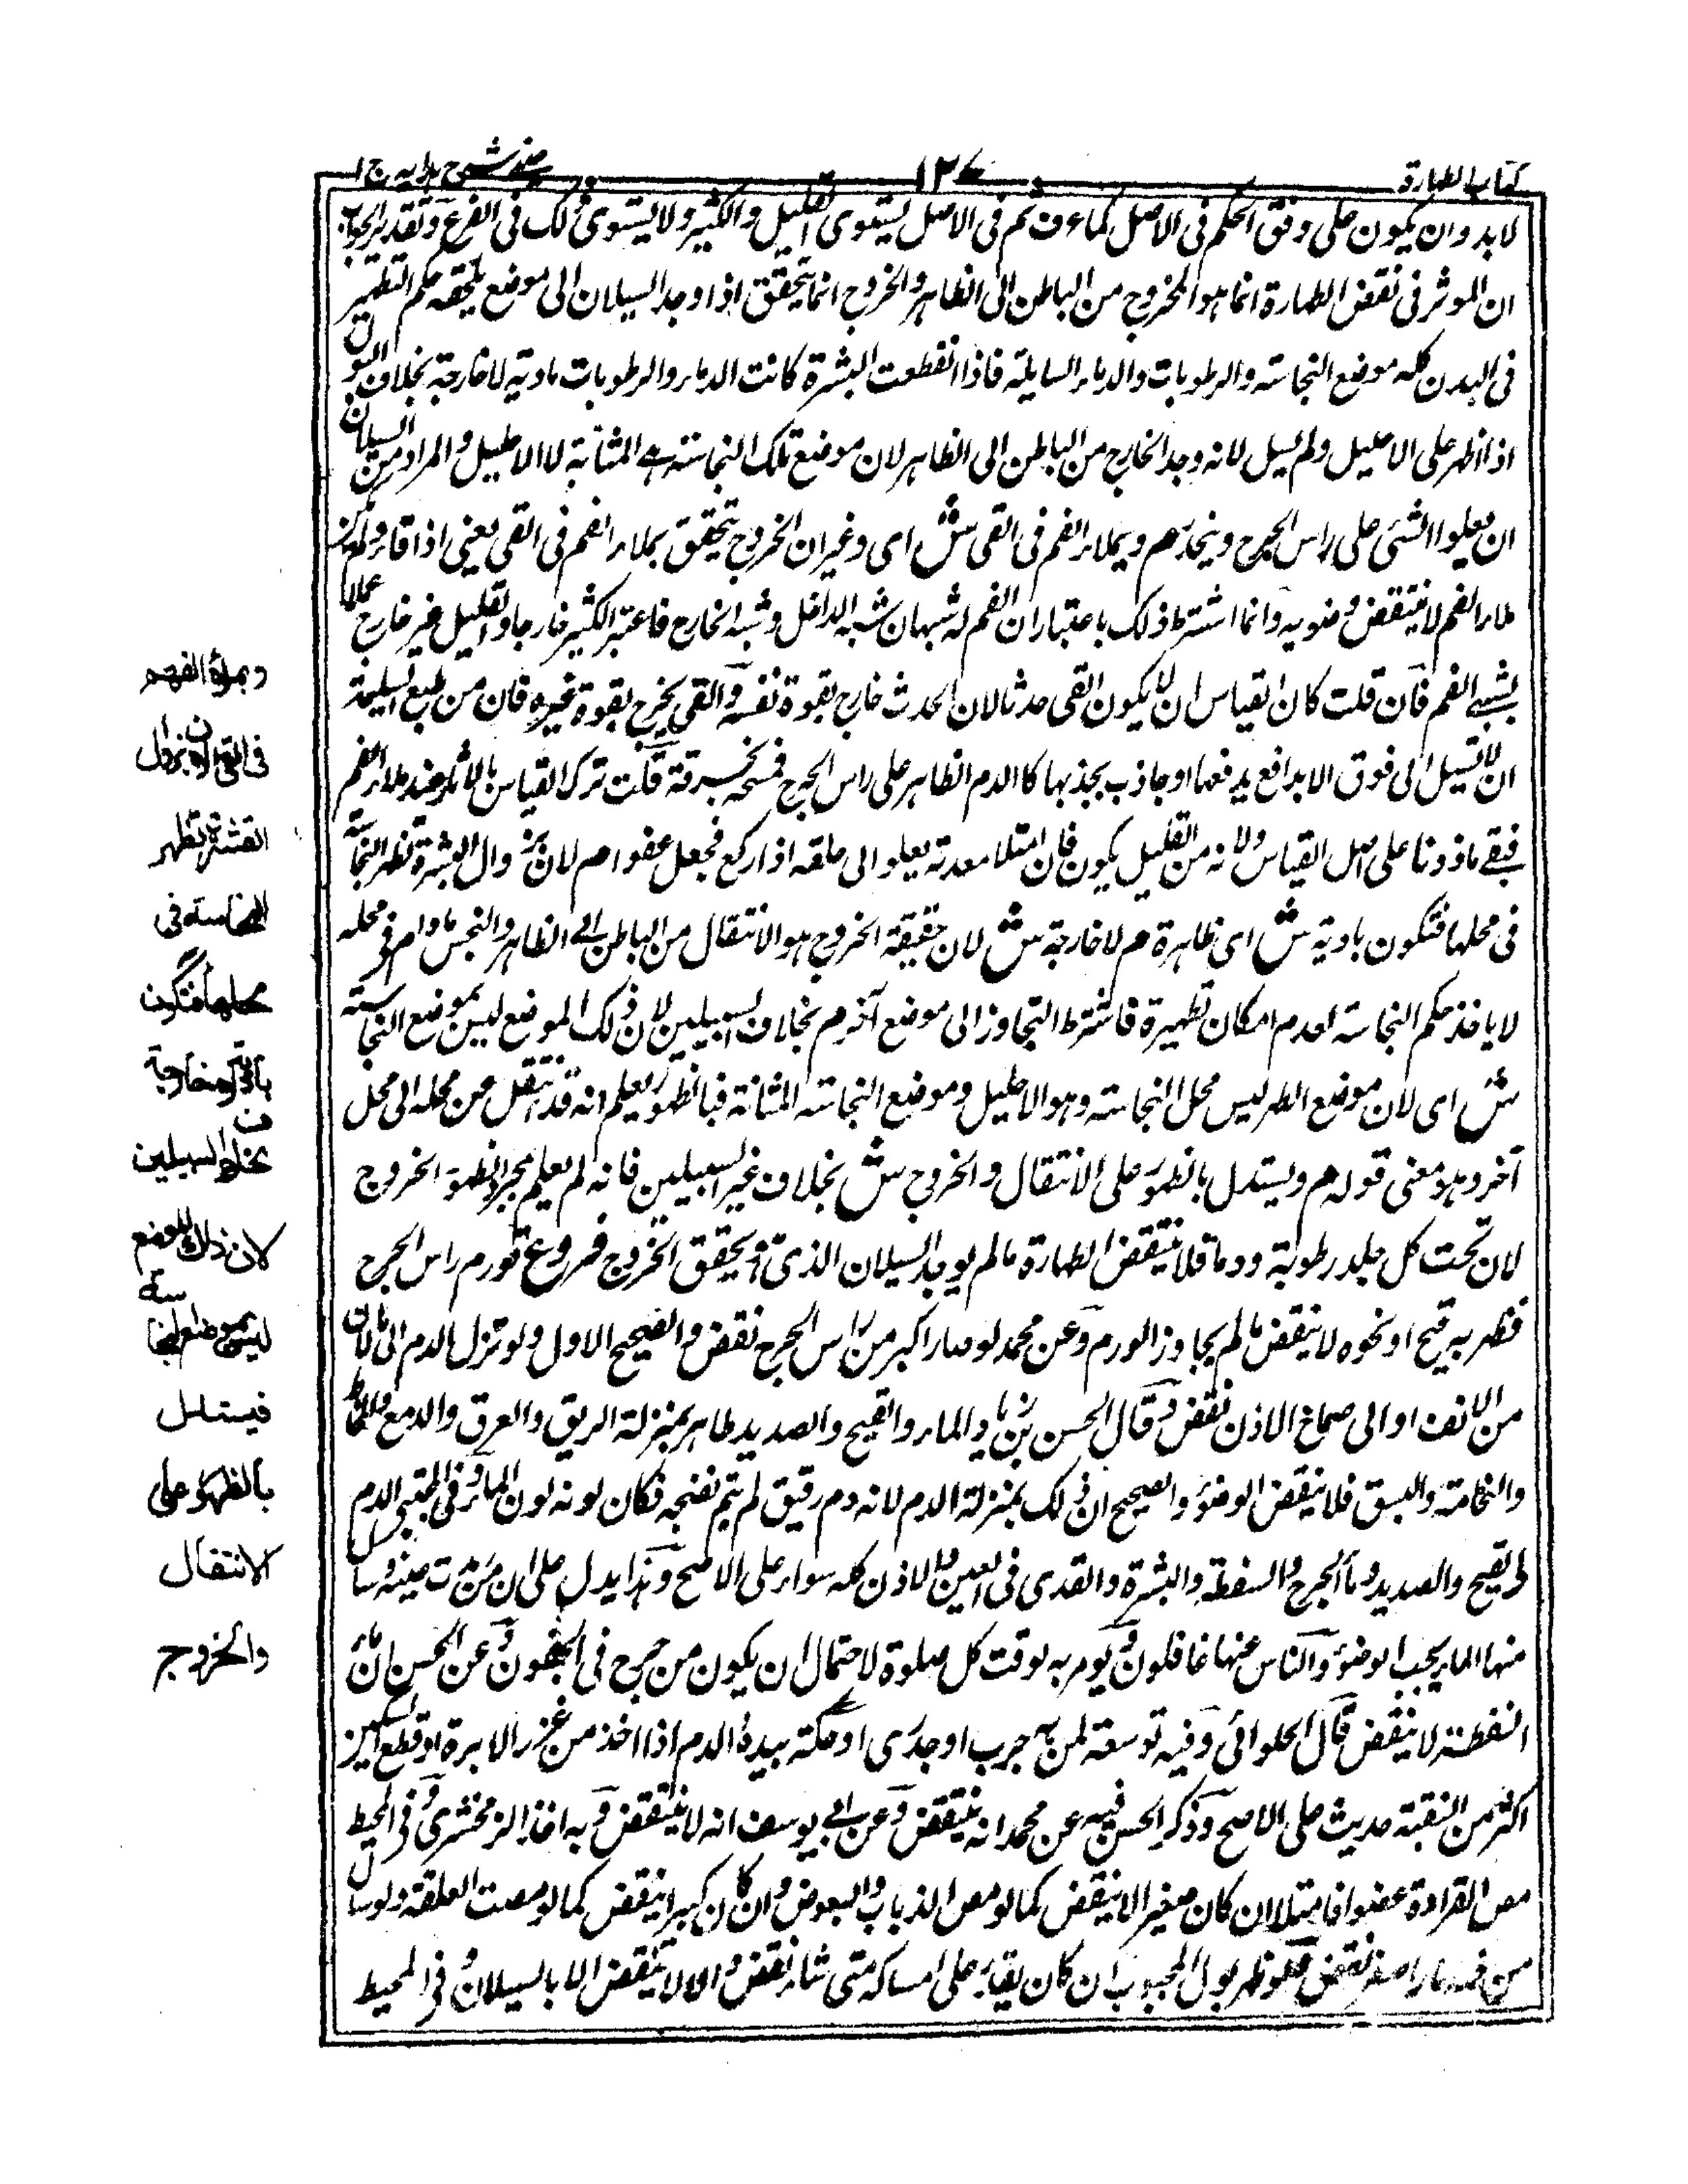 كتاب الطهارة
١٣٤
عينى شرح هدايه ج ١
لا بد وان يكون على وفق الحكم فى الاصل كما عرف ثم فى الاصل يستوى القليل والكثير ولا يستوى ذلك فى الفرع وتقدير الجواب
ان الموثر فى نقض الطهارة انما هو الخروج من الباطن الى الظاهر والخروج انما يتحقق اذا وجد السيلان الى موضع يلحقه حكم التطهير
فى البدن كله موضع النجاسة والرطوبات والدماء السايلة فاذا انقطعت البشرة كانت الدماء والرطوبات بادية لا خارجة بخلاف البول
اذا ظهر على الاحليل ولم يسيل لانه وجد الخارج من الباطن الى الظاهر لان موضع تلك النجاسة هى المثانة لا الاحليل والمراد من السيلان
ان يعلوا الشئى على راس الجرح وينحدر م ويملاء الفم فى القى ش اى وغير ان الخروج يتحقق بملاء الفم فى القى يعنى اذا قاء ولم يكن
ملاء الفم لا ينتقض وضويه وانما اشترط ذلك باعتبار ان الفم له شبهان شبه الداخل وشبه الخارج فاعتبر الكثير خارجا والقليل غير خارج عملا
بشبهى الفم فان قلت كان القياس ان لا يكون القى حدثا لان الحدث خارج بقوة نفسه والقى يخرج بقوة غيره فان من طبع السيلة
ان لا تسيل الى فوق الا بدافع يدفعها او جاذب يجذبها كالدم الظاهر على راس الجرح فمسحه بخرقة قلت ترك القياس بالاثر عند ملاء الفم
فبقى ما دونا على اصل القياس ولانه من القليل يكون فان امتلا معدته يعلو الى حلقه اذا ركع فجعل عفوا م لان بزوال البشرة تظهر النجاسة
فى محلها فتكون بادية ش اى ظاهرة م لا خارجة ش لان حقيقة الخروج هو الانتقال من الباطن الى الظاهر والنجس ما دام فى محله
لا ياخذ حكم النجاسة لعدم امكان تطهيرة فاشترط التجاوز الى موضع آخر م بخلاف السبيلين لان ذلك الموضع ليس بموضع النجاسة
ش اى لان موضع الطهر ليس محل النجاسة وهو الاحليل وموضع النجاسة المثانة فبالظهور يعلم انه قد انتقل من محله الى محل
آخر وهو معنى قوله م ويستدل بالظهور على الانتقال والخروج ش بخلاف غير السبيلين فانه لم يعلم بمجرد الظهور الخروج
لان تحت كل جلد رطوبة ودما فلا ينتقض الطهارة ما لم يوجد السيلان الذى به يتحقق الخروج فروع تورم راس الجرح
فظهر به قيح او نحوه لا ينقض ما لم يجاوز الورم وعن محمد لو صار اكبر من راس الجرح نقض والصحيح الاول ولو تزل الدم الى ما لان
من الانف او الى صماخ الاذن نقض وقال الحسن بن زياد الماء والقيح والصديد طاهر بمنزلة الريق والعرق والدمع والمخاط
والنخامة والبسق فلا ينقض الوضؤ والصحيح ان ذلك بمنزلة الدم لانه دم رقيق لم يتم نضجه فكان لونه لون الماء وفى المجتبى الدم
والقيح والصديد وماء الجرح والنفطة والبشرة والثدى فى العين والاذن كله سواء على الاصح وهذا يدل على ان من رمدت عينه وسال
منها الماء يجب الوضوء والناس عنها غافلون ويومر به لوقت كل صلوة لاحتمال ان يكون من جرح فى الجفون وعن الحسن ان ماء
النفطة لا ينقض قال الحلوانى وفيه توسعة لمن به جرب او جدرى او حكة بيده الدم اذا اخذ من غرز الابرة او قطع السكين
اكثر من النقبة حديث على الاصح وذكر الحسن فيه عن محمد انه ينتقض وعن ابى يوسف انه لا ينتقض وبه اخذ الزمخشرى وفى المحيط
مص القرادة عضوا فامتلا ان كان صغيرا لا ينقض كما لو مص الذباب والبعوض وان كان كبيرا ينقض كما لو مصت العلقة ولو سال
من فمه ماء اصفر نقض ولو ظهر بول المجبوب ان كان يقدر على امساكه متى شاء نقض والا لا ينقض الا بالسيلان وفى المحيط
وبملأ الفم
فى القئ لان بزوال
القشرة تظهر
النجاسة فى
محلها فتكون
بادية لا خارجة
بخلاف السبيلين
لان ذلك الموضع
ليس بموضع النجاسة
فيستدل
بالظهور على
الانتقال
والخروج